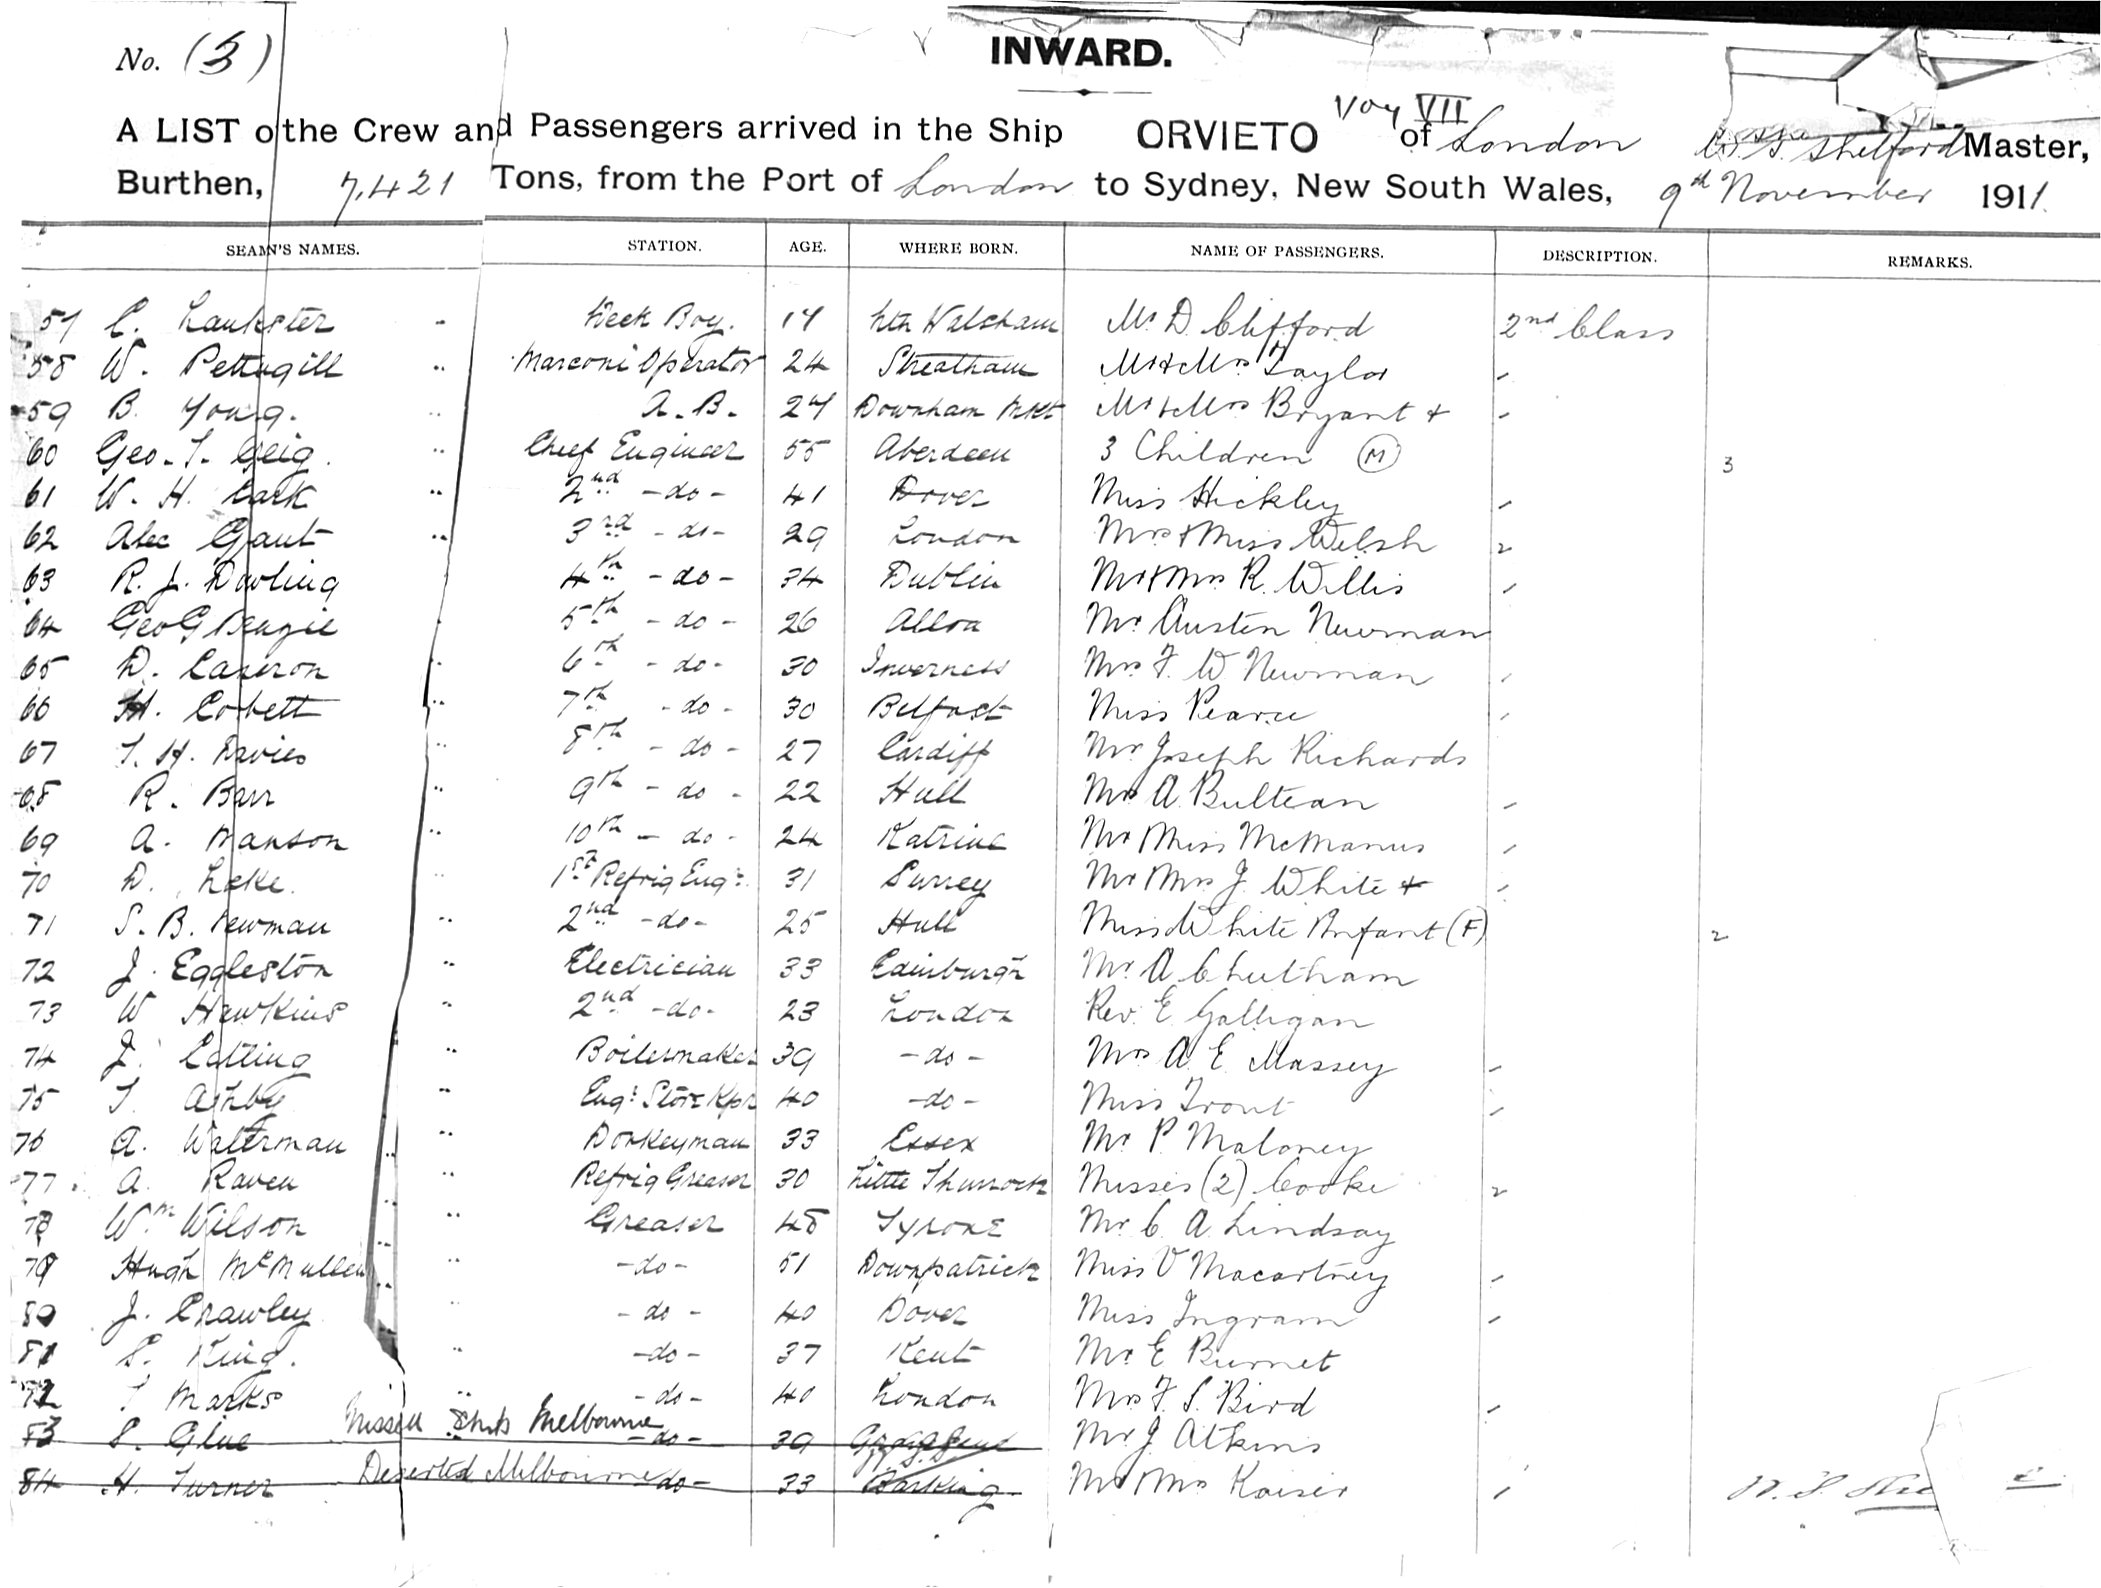 No. (3)
INWARD.
A LIST o the Crew and Passengers arrived in the Ship ORVIETO Voy VII of London Shelford Master,
Burthen, 7,421 Tons, from the Port of London to Sydney, New South Wales, 9th November 1911.
SEAMN'S NAMES. STATION. AGE. WHERE BORN. NAME OF PASSENGERS. DESCRIPTION. REMARKS.
57 C. Lankster Deck Boy. 17 Nth Walsham Mr. D. Clifford 2nd Class
58 W. Pettingill Marconi Operator 24 Streatham Mr & Mrs Taylor
59 B. Young. A.B. 27 Downham Mkt Mr & Mrs Bryant +
60 Geo. T. Geig. Chief Engineer 55 Aberdeen 3 Children (M) 3
61 W. H. Cark 2nd -do- 41 Dover Miss Hickley
62 Alec Gaut 3rd -do- 29 London Mrs & Miss Welsh 2
63 R. J. Dowling 4th -do- 34 Dublin Mr & Mrs R. Willis
64 Geo G Benzie 5th -do- 26 Alloa Mr Austen Newman
65 D. Cameron 6th -do- 30 Inverness Mrs F. W Newman
66 H. Corbett 7th -do- 30 Belfast Miss Pearce
67 T. H. Davies 8th -do- 27 Cardiff Mr Joseph Richards
68 R. Barr 9th -do- 22 Hull Mrs A. Bultean
69 A. Manson 10th -do- 24 Katrine Mr Miss McManus
70 D. Lake. 1st Refrig Engr. 31 Surrey Mr Mrs J. White +
71 S. B. Newman 2nd -do- 25 Hull Miss White Infant (F) 2
72 J. Eggleston Electrician 33 Edinburgh Mr. A Cheetham
73 W Hawkins 2nd -do- 23 London Rev. E Galligan
74 J. Catling Boilermaker 39 -do- Mrs A. E Massey
75 T. Ashby Engr. Store Kpr 40 -do- Miss Trout
76 A. Waterman Donkeyman 33 Essex Mr P. Maloney
77 A. Raven Refrig Greaser 30 Little Thurrock Misses (2) Cooke 2
78 Wm Wilson Greaser 48 Tyrone Mr. C. A. Lindsay
79 Hugh McMullen -do- 51 Downpatrick Miss V Macartney
80 J. Crawley -do- 40 Dover Miss Ingram
81 S. King. -do- 37 Kent Mr. E Burnet
72 T Marks -do- 40 London Mrs F. S. Bird
83 S. Glue Missed Ship Melbourne -do- 39 Gravesend Mr J. Atkins
84 H. Turner Deserted Melbourne do- 33 Barking Mr Mrs Kaiser